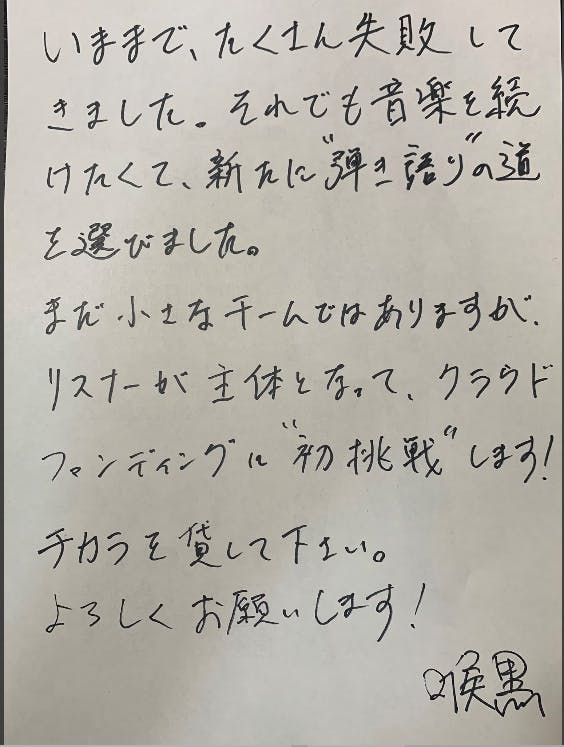 いままで、たくさん失敗して
きました。それでも音楽を続
けたくて、新たに"弾き語り"の道
を選びました。
まだ小さなチームではありますが、
リスナーが主体となって、クラウド
ファンディングに"初挑戦"します!
チカラを貸して下さい。
よろしくお願いします!
喉黒